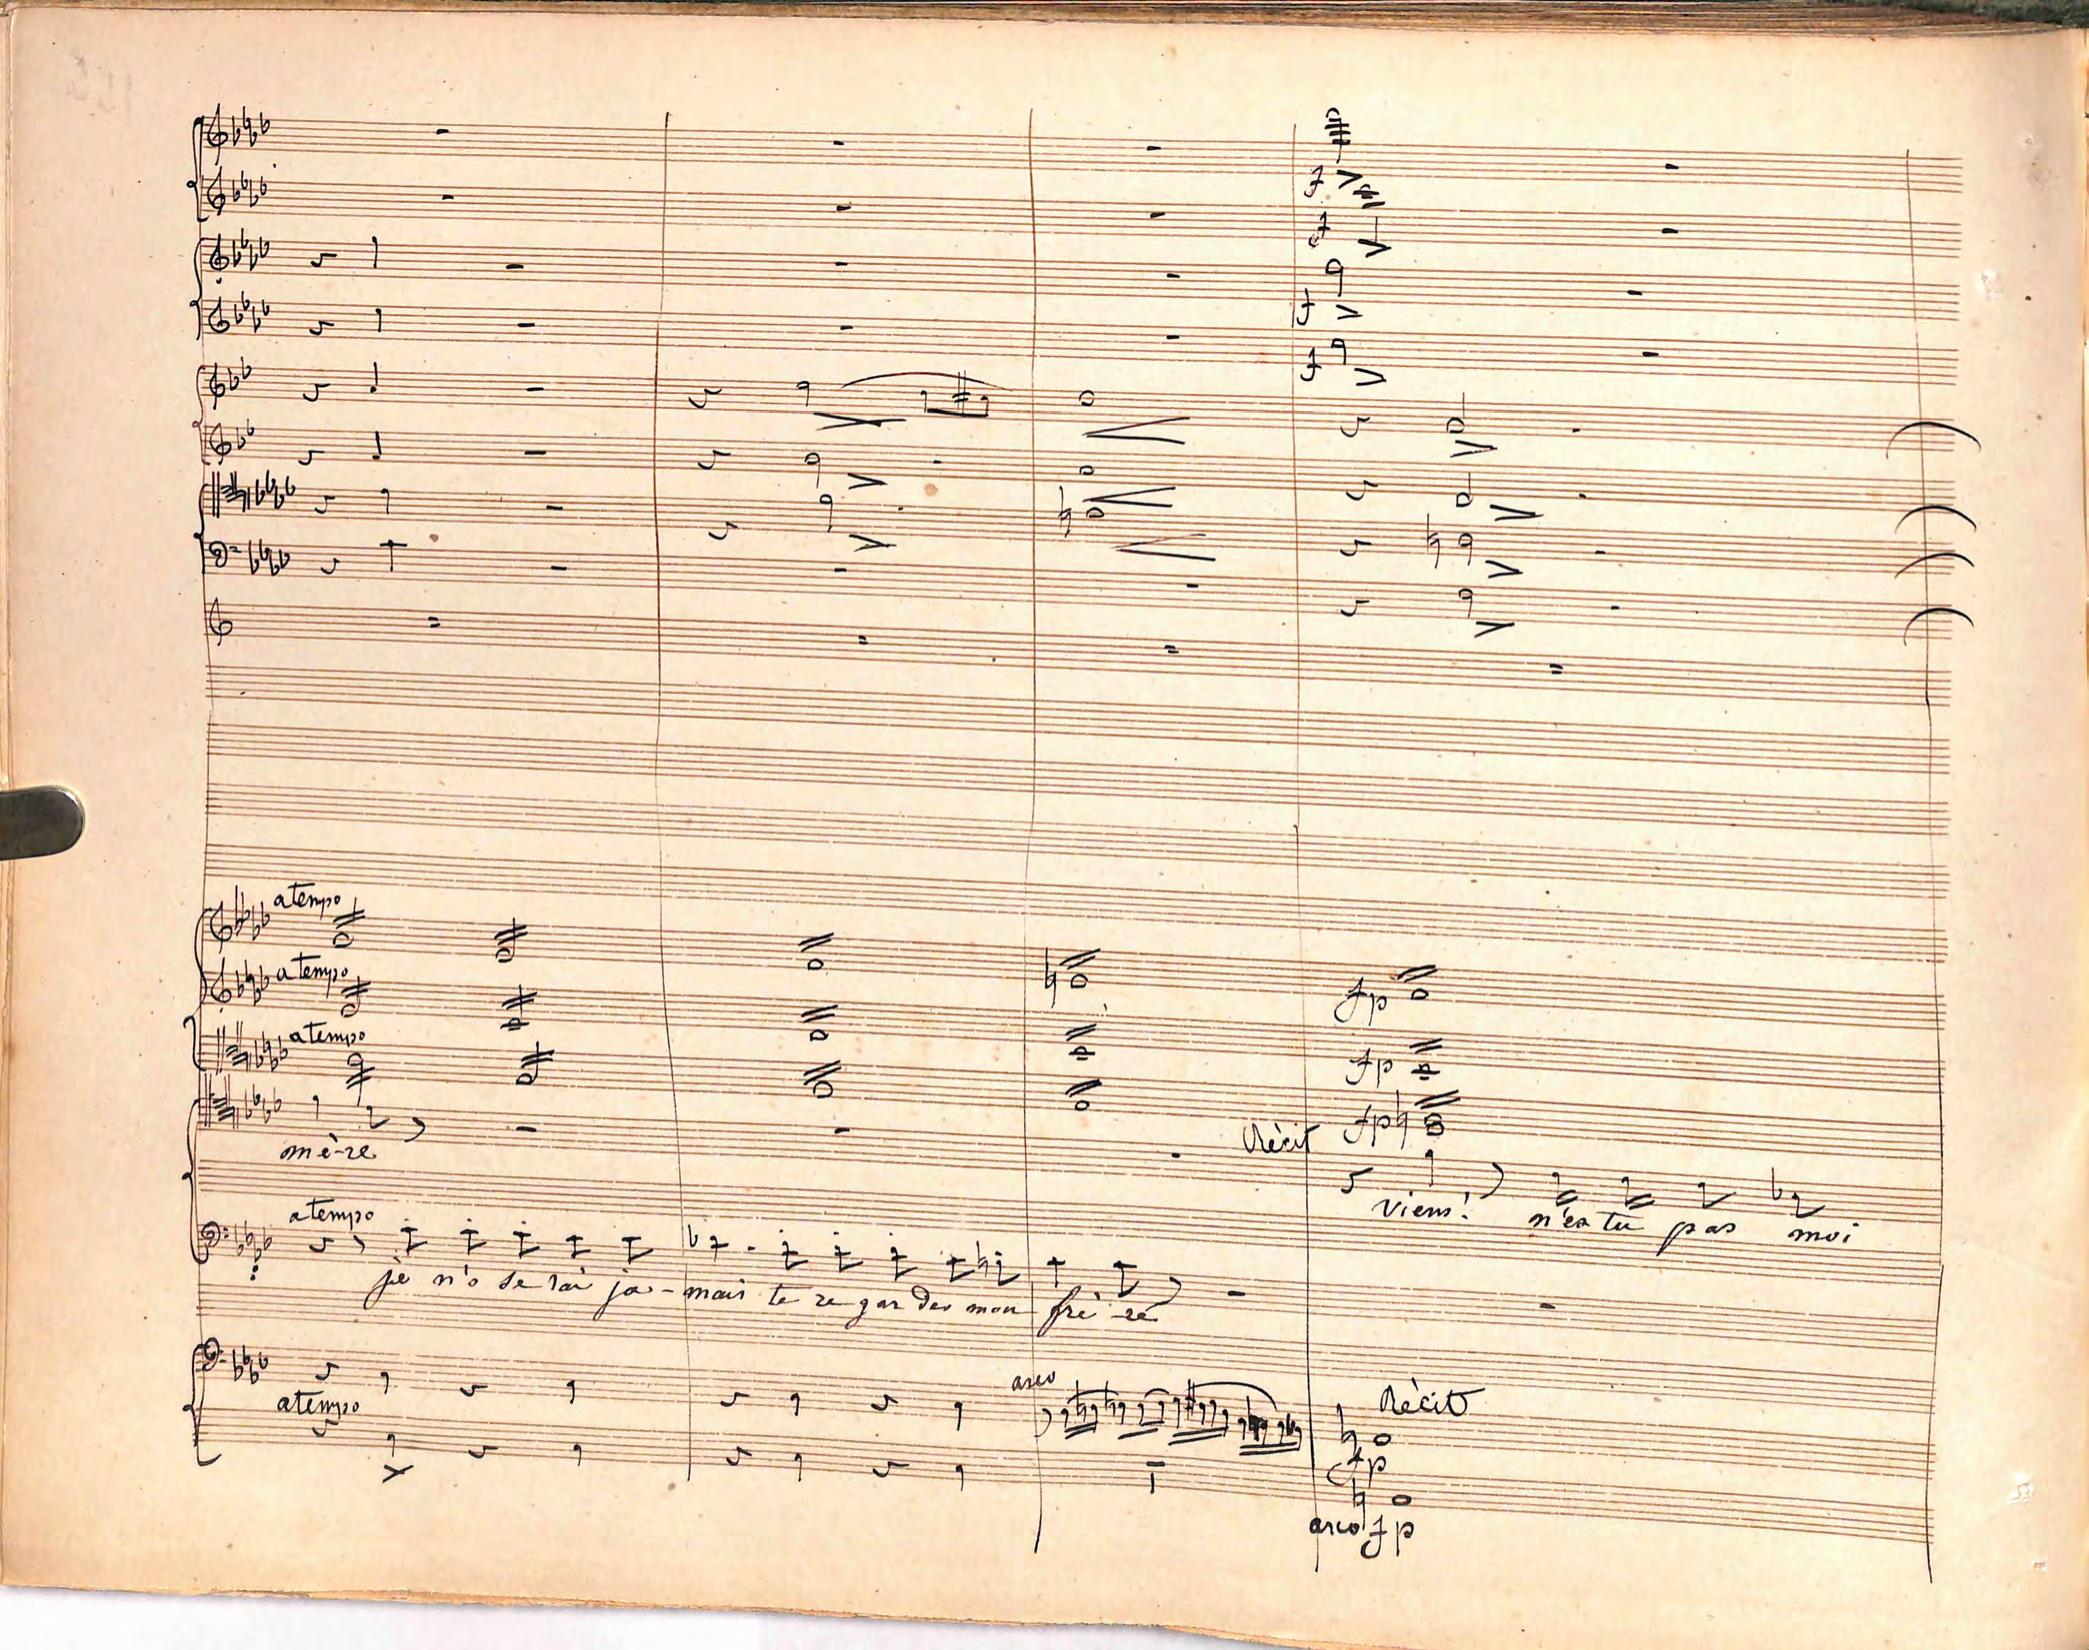 f
f
f
f
a tempo
a tempo
fp
a tempo
fp
Récit fp
mè-re
viens! n'es tu pas moi
a tempo
je n'o se rai ja-mais te re gar der mon frè-re
arco
Récit
a tempo
fp
arco fp